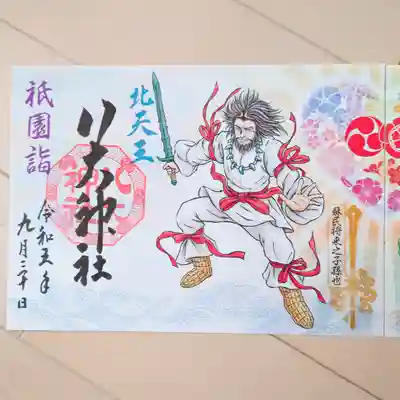 蘇民将来之子孫也
北天王
八大神社
祇園詣
令和五年
九月三十日